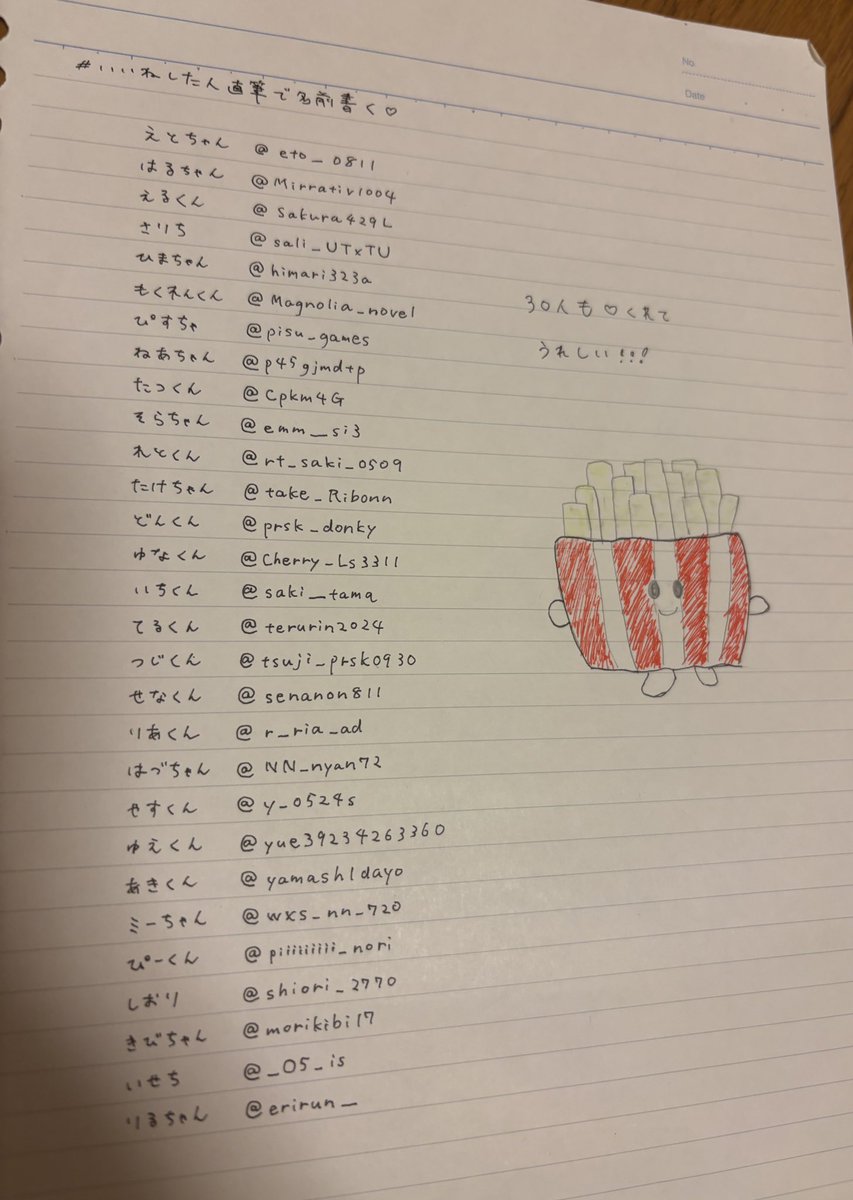 No.
Date
#いいねした人直筆で名前書く♡
えとちゃん @eto_0811
はるちゃん @Mirrativ1004
えるくん @Sakura429L
さりち @sali_UTxTU
ひまちゃん @himari323a
もくれんくん @Magnolia_novel
ぴすちゃ @pisu_games
ねあちゃん @p45gjmdtp
たっくん @Cpkm4G
そらちゃん @emm__si3
れとくん @rt_saki_0509
たけちゃん @take_Ribonn
どんくん @prsk_donky
ゆなよくん @Cherry_Ls3311
いちくん @saki__tama
てるくん @terurin2024
つじくん @tsuji_prsk0930
せなくん @senanon811
りあくん @r_ria_ad
はづちゃん @NN_nyan72
やすくん @y_0524s
ゆえくん @yue39234263360
あきくん @yamash1dayo
ミーちゃん @wxs_nn_720
ぴーくん @piiiiiiiii_nori
しおり @shiori_2770
きびちゃん @morikibi17
いせち @_05_is
りるちゃん @erirun_
30人も♡くれて
うれしい!!!